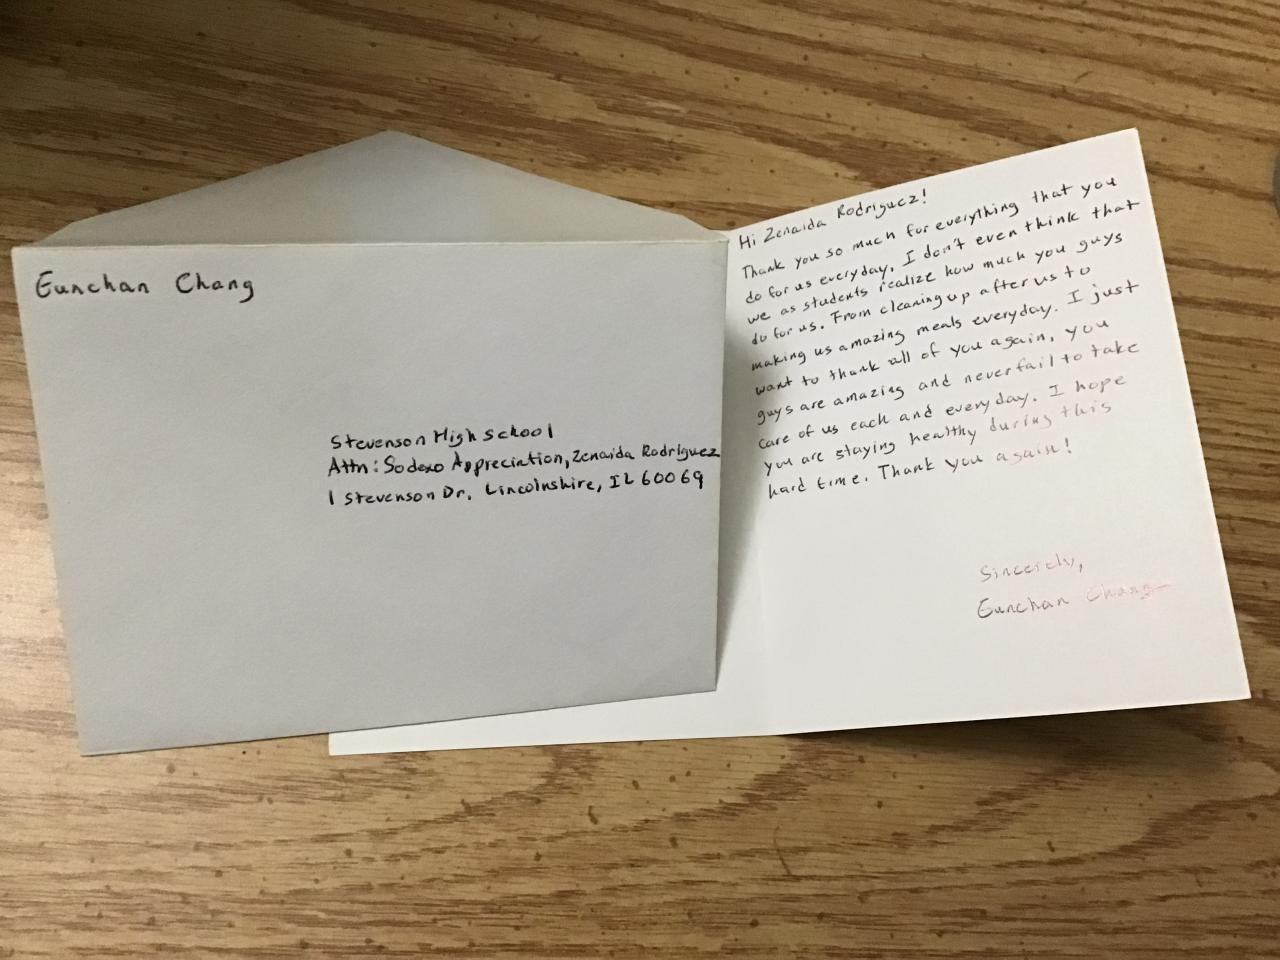 Eunchan Chang
Stevenson High School
Attn: Sodexo Appreciation, Zenaida Rodriguez
1 Stevenson Dr. Lincolnshire, IL 60069
Hi Zenaida Rodriguez!
Thank you so much for everything that you
do for us everyday. I don't even think that
we as students realize how much you guys
do for us. From cleaning up after us to
making us amazing meals everyday. I just
want to thank all of you again, you
guys are amazing and never fail to take
care of us each and everyday. I hope
you are staying healthy during this
hard time. Thank you again!
Sincerely,
Eunchan Chang